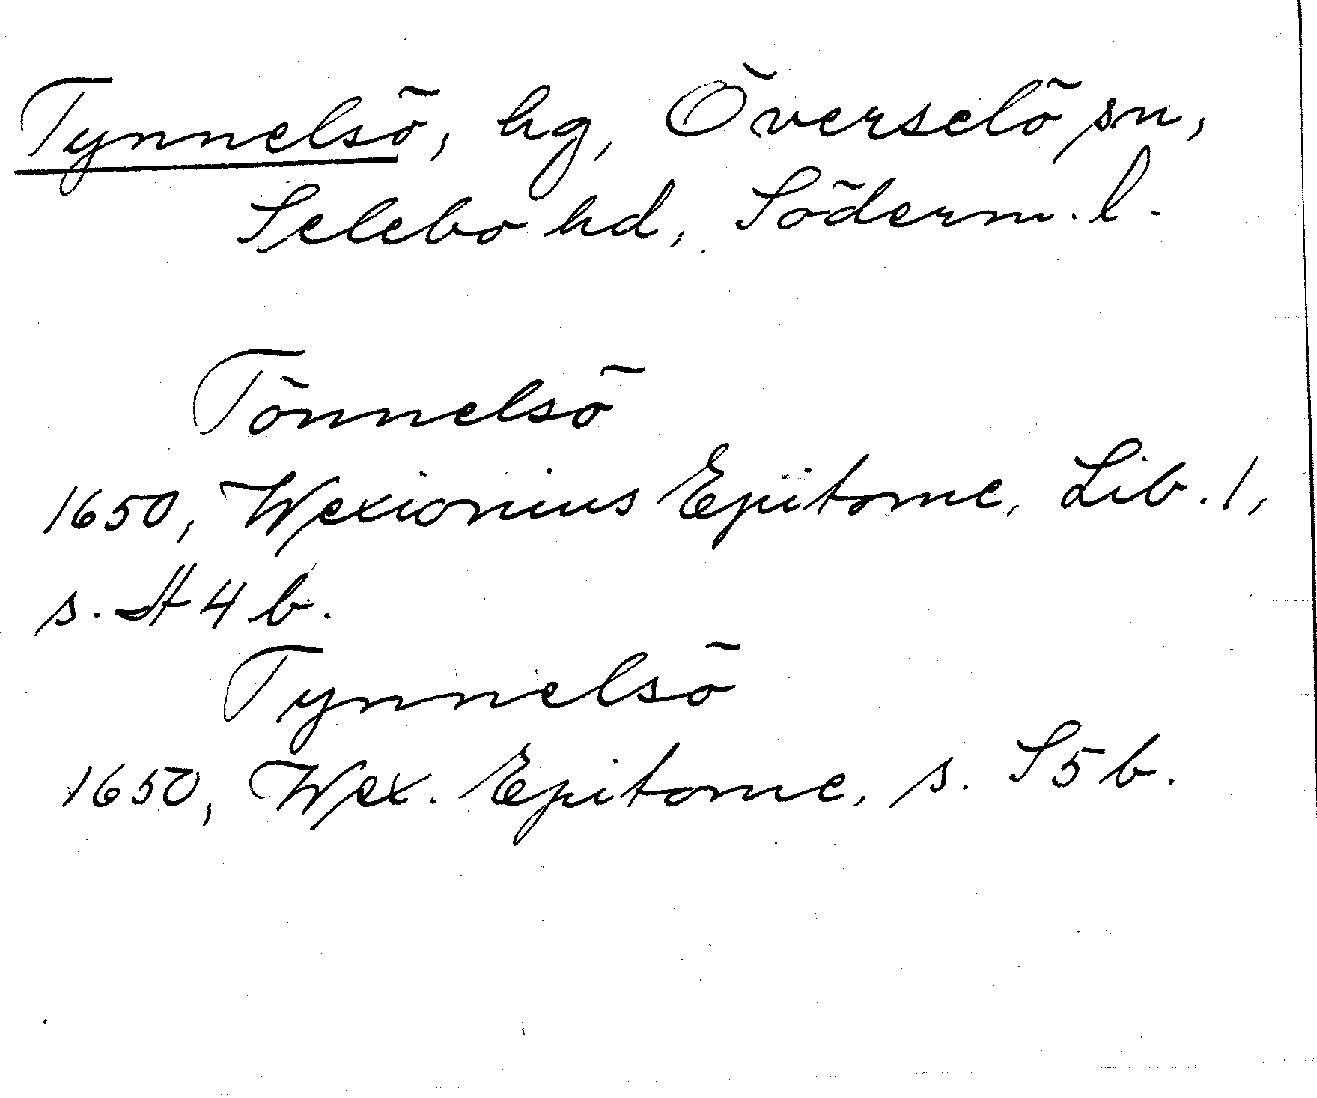 Tynnelsö, hg, Överselö sn,
Selebo hd, Söderm. l.
Tönnelsö
1650, Wexionius Epitome, Lib. 1,
s. H4 b.
Tynnelsö
1650, Wex. Epitome, s. S5 b.